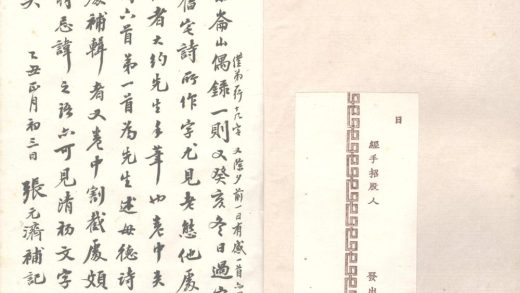 日
經手招股人
發出
又除夕前一日有感一首
崙山偶錄一則又癸亥冬日過
舊宅詩所作字尤見老憊他處
者大約先生手筆也卷中夾
六首第一首為先生述母德詩
處補輯者又卷中割截處頗
忌諱之語亦可見清初文字
乙丑正月初三日 張元濟補記